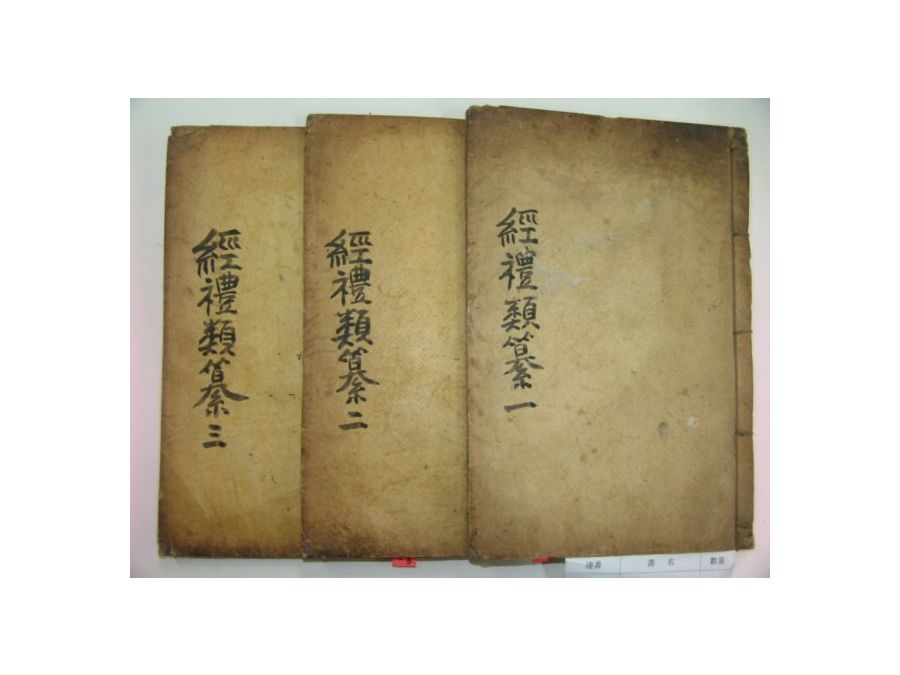 經禮類纂一
經禮類纂二
經禮類纂三
連番 書名 數量
3